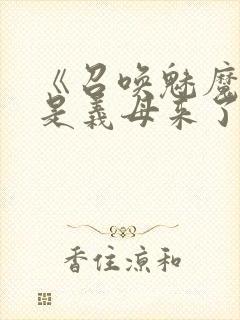 《召唤魅魔
是义母来了
香住凉和